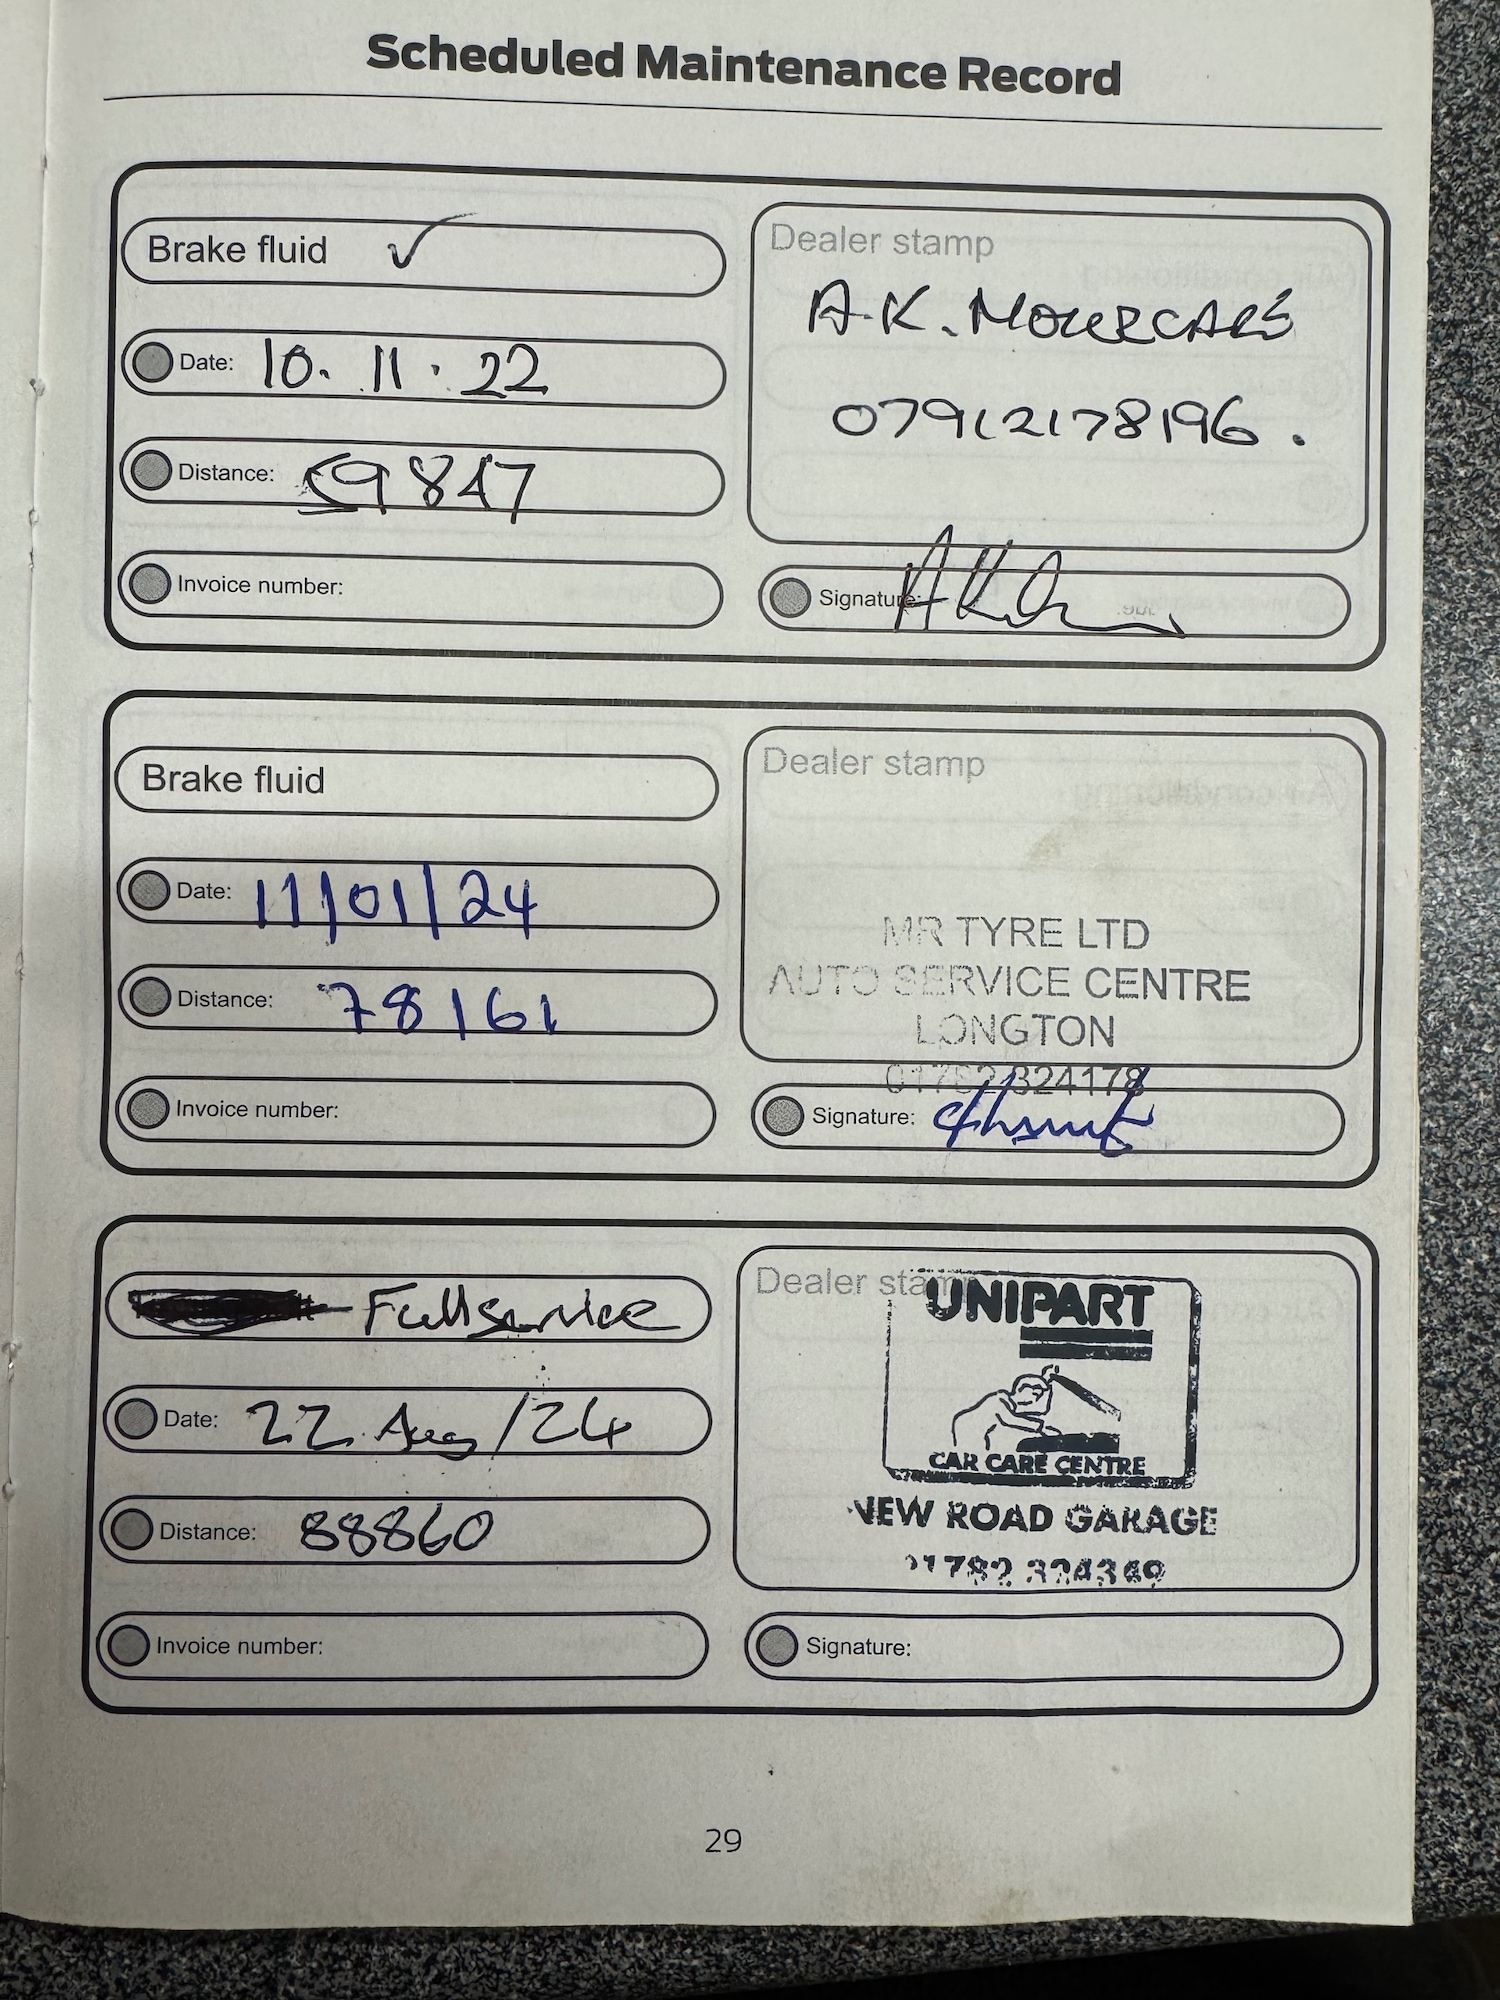 Scheduled Maintenance Record
Brake fluid ✓
Dealer stamp
A.K. MOTORCARS
07912178196.
Date: 10. 11. 22
Distance: 59847
Invoice number:
Signature:
Brake fluid
Dealer stamp
MR TYRE LTD
AUTO SERVICE CENTRE
LONGTON
01782 324178
Date: 11/01/24
Distance: 78161
Invoice number:
Signature:
Full service
Dealer stamp
UNIPART
CAR CARE CENTRE
NEW ROAD GARAGE
01782 324349
Date: 22 Aug/24
Distance: 88860
Invoice number:
Signature:
29